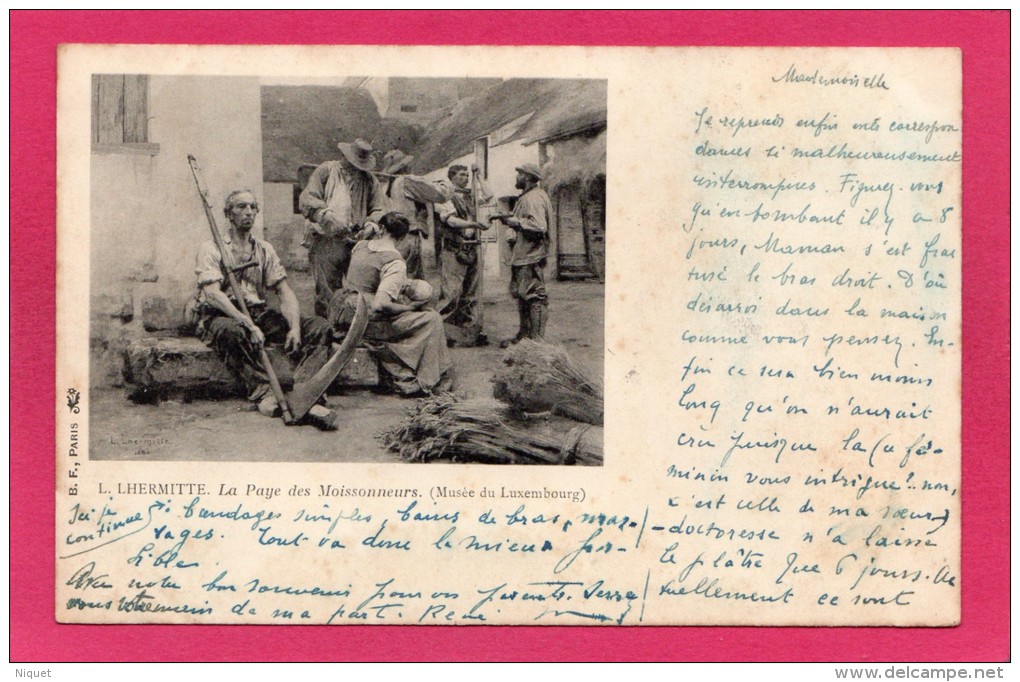 Mademoiselle
Je reprends enfin notre correspon
dance si malheureusement
interrompue. Figurez-vous
qu'en tombant il y a 8
jours, Maman s'est frac
turé le bras droit. D'où
désarroi dans la maison
comme vous pensez. En-
fin ce sera bien moins
long qu'on n'aurait
cru puisque la (ce fé-
minin vous intrigue?.. non,
c'est celle de ma sœur)
-doctoresse n'a laissé
le plâtre que 6 jours. Ac
tuellement ce sont
L. Lhermitte
B. F., PARIS
L. LHERMITTE. La Paye des Moissonneurs. (Musée du Luxembourg)
Ici je
continue
bandages simples, bains de bras, mas-
sages. Tout va donc le mieux pos-
sible.
Avec notre bon souvenir pour vos parents. Serrez
vous votre main de ma part. René
Niquet
www.delcampe.net